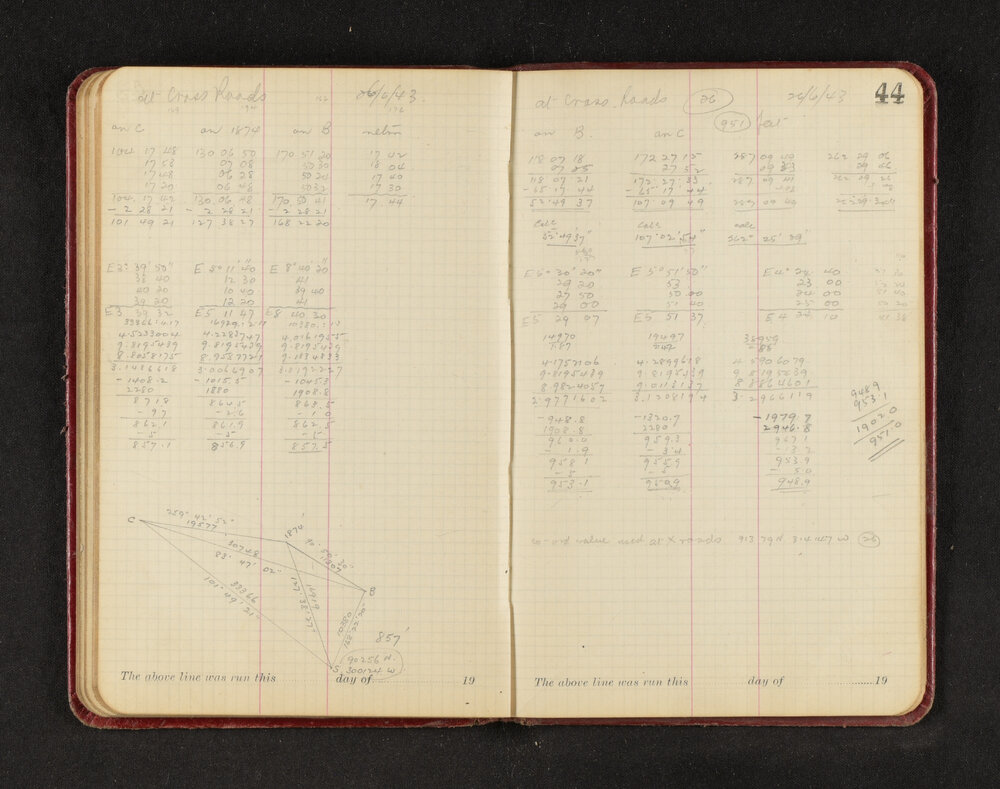 at Cross Roads 26/6/43.
on C on 1874 on B
104 17 48 130 06 50 170 51 20 17 42
17 53 07 08 50 30 18 04
17 48 06 28 50 24 17 40
17 20 06 48 50 32 17 30
104.17 42 130.06 48 170.50 41 17 44
- 2 28 21 - 2 28 21 - 2 28 21
101 49 21 127 38 27 168 22 20
E 3° 39' 50" E 5° 11' 40" E 8° 40' 20"
38 40 12 30 41
40 20 10 40 39 40
39 20 12 20 41
E3 39 32 E5 11 47 E8 40 30
4.5233004 4.2283747 4.0161955
9.8195439 9.8195439 9.8195439
8.8058175 8.9587721 9.1834833
3.1486618 3.0066907 3.0192227
- 1408.2 - 1015.5 - 1045.3
2280 1880 1908.8
871.8 864.5 863.5
- 9.7 - 2.6 1.0
862.1 861.9 862.5
- 5 5 - 5
857.1 856.9 857.5
C 259° 42' 52"
19577
1874
30748
83° 47' 02"
B
33366
101° 49' 21"
10380
168° 22' 20"
857'
S
90256 N.
300124 W.
The above line was run this day of 19
44
at Cross Roads 26 26/6/43
951 feet
on B. on C
118 07 18 172 27 15 287 09 40 262 29 06
07 25 27 52 09 43 29 46
118 07 21 172.27.33 287 09 41 262 29 26
- 65.17 44 - 65.17 44
52.49 37 107 09 49
calc calc calc
52° 49' 37" 107° 02' 54" 262° 25' 29"
E5° 30' 20" E 5° 51' 50" E4° 24 40
29 20 53 23 00
27 50 50 00 24 00
29 00 51 40 25 00
E5 29 07 E5 51 37 E 4 24 10
14970 19497 38959
4.1752106 4.2899618 4.5906079
9.8195439 9.8195439 9.8195439
8.9824057 9.0113137 8.8864601
2.9771602 3.1208194 3.2966119
- 948.8 - 1320.7 - 1979.7
1908.8 2280 2946.8
960.0 959.3 967.1
- 1.9 - 3.4 - 13.2
958.1 955.9 953.9
- 5 - 5 - 5.0
953.1 950.9 948.9
948.9
953.1
1902.0
951.0
co-ord value used at X roads 913 79 N 314 147 W 26
The above line was run this day of 19